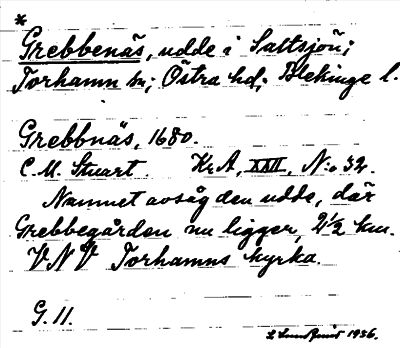 *
Grebbenäs, udde i Saltsjön;
Torhamn sn; Östra hd; Blekinge l.
Grebbnäs, 1680.
C. M. Stuart. Kr A, XXII, N:o 32.
Namnet avsåg den udde, där
Grebbegården nu ligger, 2 1/2 km.
VNV Torhamns kyrka.
G. 11.
1956.